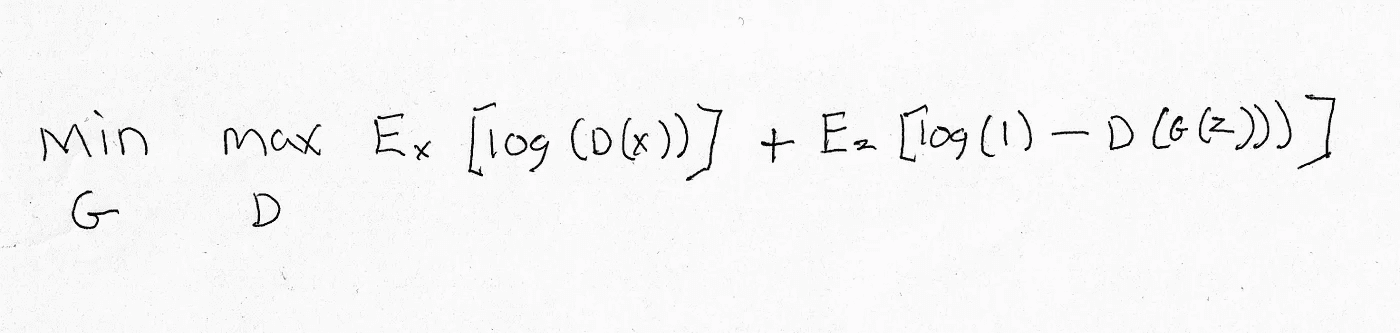 Min max Ex [log (D(x))] + Ez [log(1) – D (G(z)))]
G D